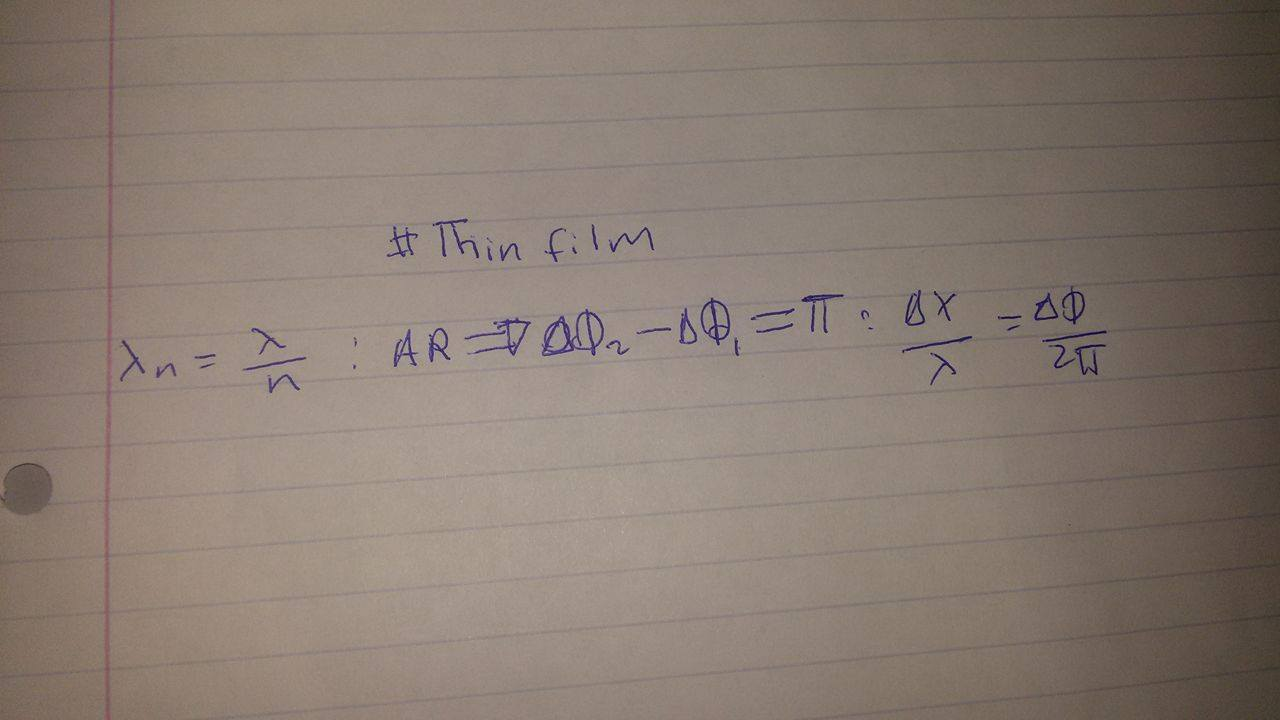 # Thin film
λn = λ/n : AR ⇒ ΔΦ₂ − ΔΦ₁ = π : ΔX/λ = ΔΦ/2π